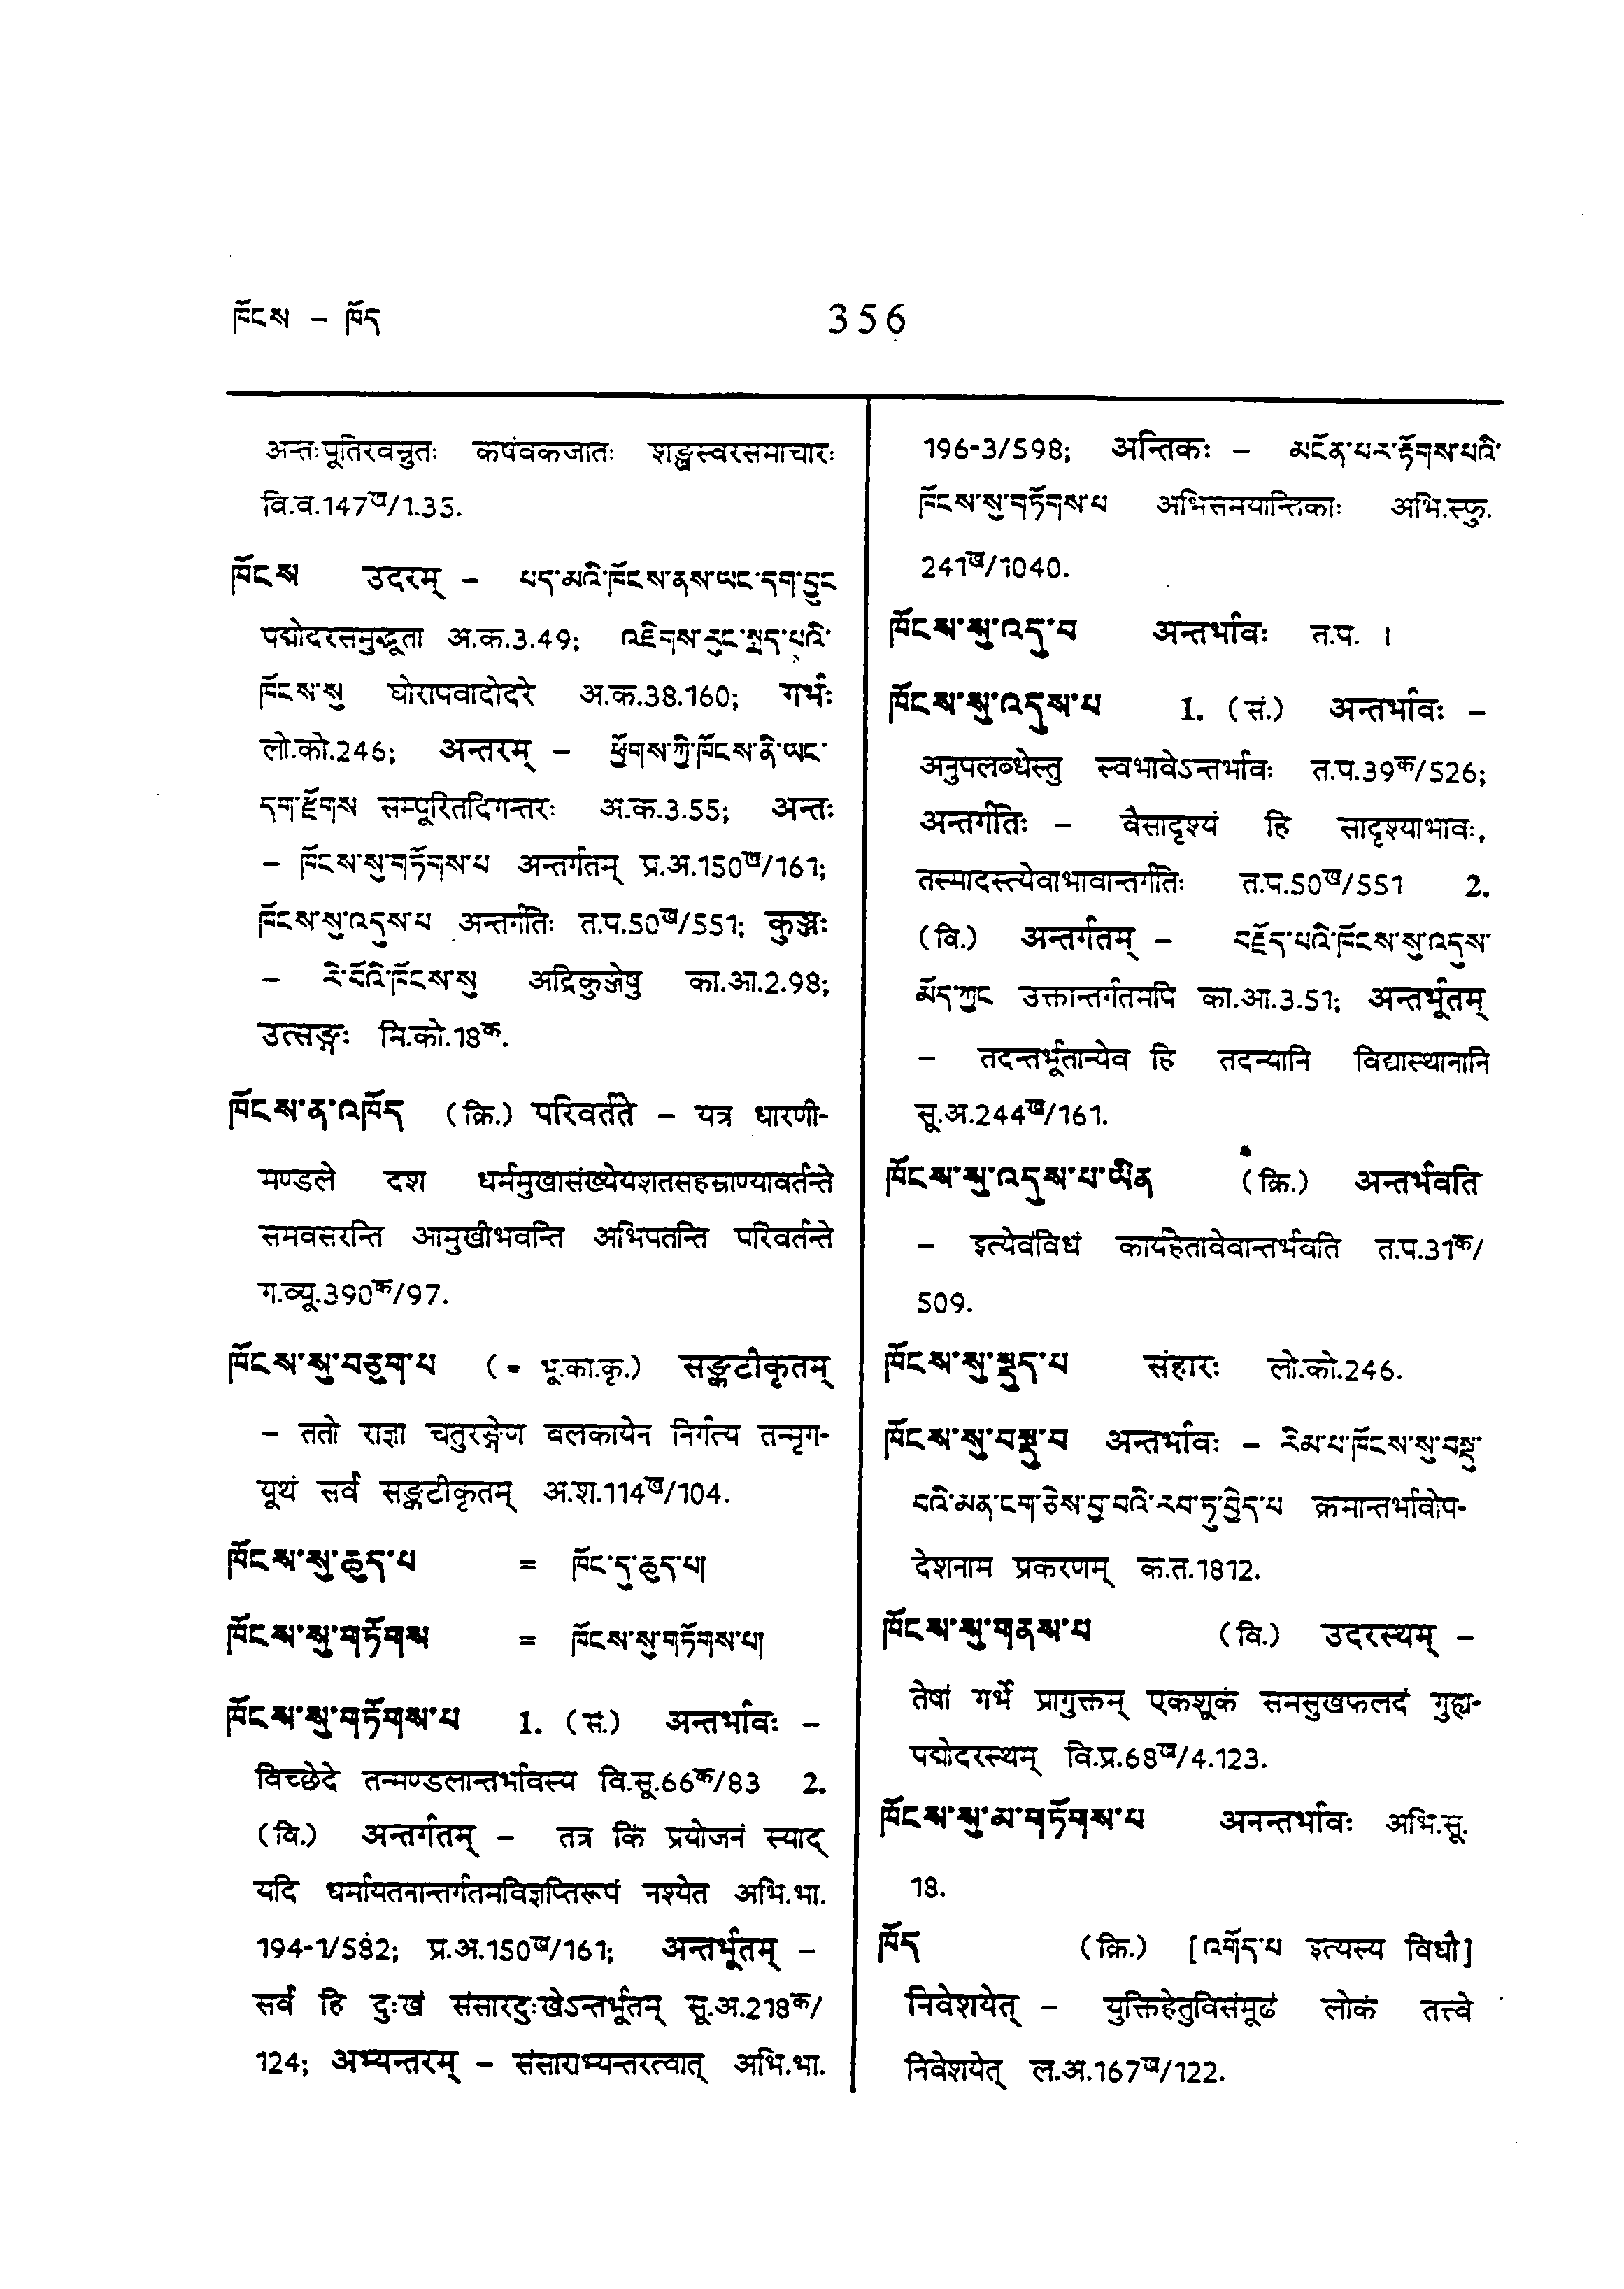 ཁོངས – ཁོད
356
अन्तःपूतिरवस्रुतः कषंवकजातः शङ्खस्वरसमाचारः
वि.व.147ख/1.35.
ཁོངས उदरम् – པད་མའི་ཁོངས་ནས་ཡང་དག་བྱུང
पद्मोदरसमुद्भूता अ.क.3.49; འཇིགས་རུང་སྨད་པའི་
ཁོངས་སུ घोरापवादोदरे अ.क.38.160; गर्भः
लो.को.246; अन्तरम् – ཕྱོགས་ཀྱི་ཁོངས་ནི་ཡང་
དག་རྫོགས सम्पूरितदिगन्तरः अ.क.3.55; अन्तः
– ཁོངས་སུ་གཏོགས་པ अन्तर्गतम् प्र.अ.150ख/161;
ཁོངས་སུ་འདུས་པ अन्तर्गतिः त.प.50ख/551; कुञ्जः
– རི་བོའི་ཁོངས་སུ अद्रिकुञ्जेषु का.आ.2.98;
उत्सङ्गः मि.को.18क.
ཁོངས་ན་འཁོད (क्रि.) परिवर्तते – यत्र धारणी-
मण्डले दश धर्ममुखासंख्येयशतसहस्राण्यावर्तन्ते
समवसरन्ति आमुखीभवन्ति अभिपतन्ति परिवर्तन्ते
ग.व्यू.390क/97.
ཁོངས་སུ་བཅུག་པ (= भू.का.कृ.) सङ्कटीकृतम्
– ततो राज्ञा चतुरङ्गेण बलकायेन निर्गत्य तन्मृग-
यूथं सर्वं सङ्कटीकृतम् अ.श.114ख/104.
ཁོངས་སུ་ཆུད་པ = ཁོང་དུ་ཆུད་པ།
ཁོངས་སུ་གཏོགས = ཁོངས་སུ་གཏོགས་པ།
ཁོངས་སུ་གཏོགས་པ 1. (सं.) अन्तर्भावः –
विच्छेदे तन्मण्डलान्तर्भावस्य वि.सू.66क/83 2.
(वि.) अन्तर्गतम् – तत्र किं प्रयोजनं स्याद्
यदि धर्मायतनान्तर्गतमविज्ञप्तिरूपं नश्येत अभि.भा.
194-1/582; प्र.अ.150ख/161; अन्तर्भूतम् –
सर्वं हि दुःखं संसारदुःखेऽन्तर्भूतम् सू.अ.218क/
124; अभ्यन्तरम् – संसाराभ्यन्तरत्वात् अभि.भा.
196-3/598; अन्तिकः – མངོན་པར་རྟོགས་པའི་
ཁོངས་སུ་གཏོགས་པ अभिसमयान्तिकाः अभि.स्फु.
241ख/1040.
ཁོངས་སུ་འདུ་བ अन्तर्भावः त.प. ।
ཁོངས་སུ་འདུས་པ 1. (सं.) अन्तर्भावः –
अनुपलब्धेस्तु स्वभावेऽन्तर्भावः त.प.39क/526;
अन्तर्गतिः – वैसादृश्यं हि सादृश्याभावः,
तस्मादस्त्येवाभावान्तर्गतिः त.प.50ख/551 2.
(वि.) अन्तर्गतम् – བརྗོད་པའི་ཁོངས་སུ་འདུས་
མོད་ཀྱང उक्तान्तर्गतमपि का.आ.3.51; अन्तर्भूतम्
– तदन्तर्भूतान्येव हि तदन्यानि विद्यास्थानानि
सू.अ.244ख/161.
ཁོངས་སུ་འདུས་པ་ཡིན (क्रि.) अन्तर्भवति
– इत्येवंविधं कार्यहेतावेवान्तर्भवति त.प.31क/
509.
ཁོངས་སུ་སྡུད་པ संहारः लो.को.246.
ཁོངས་སུ་བསྡུ་བ अन्तर्भावः – རིམ་པ་ཁོངས་སུ་བསྡུ་
བའི་མན་ངག་ཅེས་བྱ་བའི་རབ་ཏུ་བྱེད་པ क्रमान्तर्भावोप-
देशनाम प्रकरणम् क.त.1812.
ཁོངས་སུ་གནས་པ (वि.) उदरस्थम् –
तेषां गर्भे प्रागुक्तम् एकशूकं समसुखफलदं गुह्य-
पद्मोदरस्थम् वि.प्र.68ख/4.123.
ཁོངས་སུ་མ་གཏོགས་པ अनन्तर्भावः अभि.सू.
18.
ཁོད (क्रि.) [འགོད་པ इत्यस्य विधौ]
निवेशयेत् – युक्तिहेतुविसंमूढं लोकं तत्त्वे
निवेशयेत् ल.अ.167ख/122.